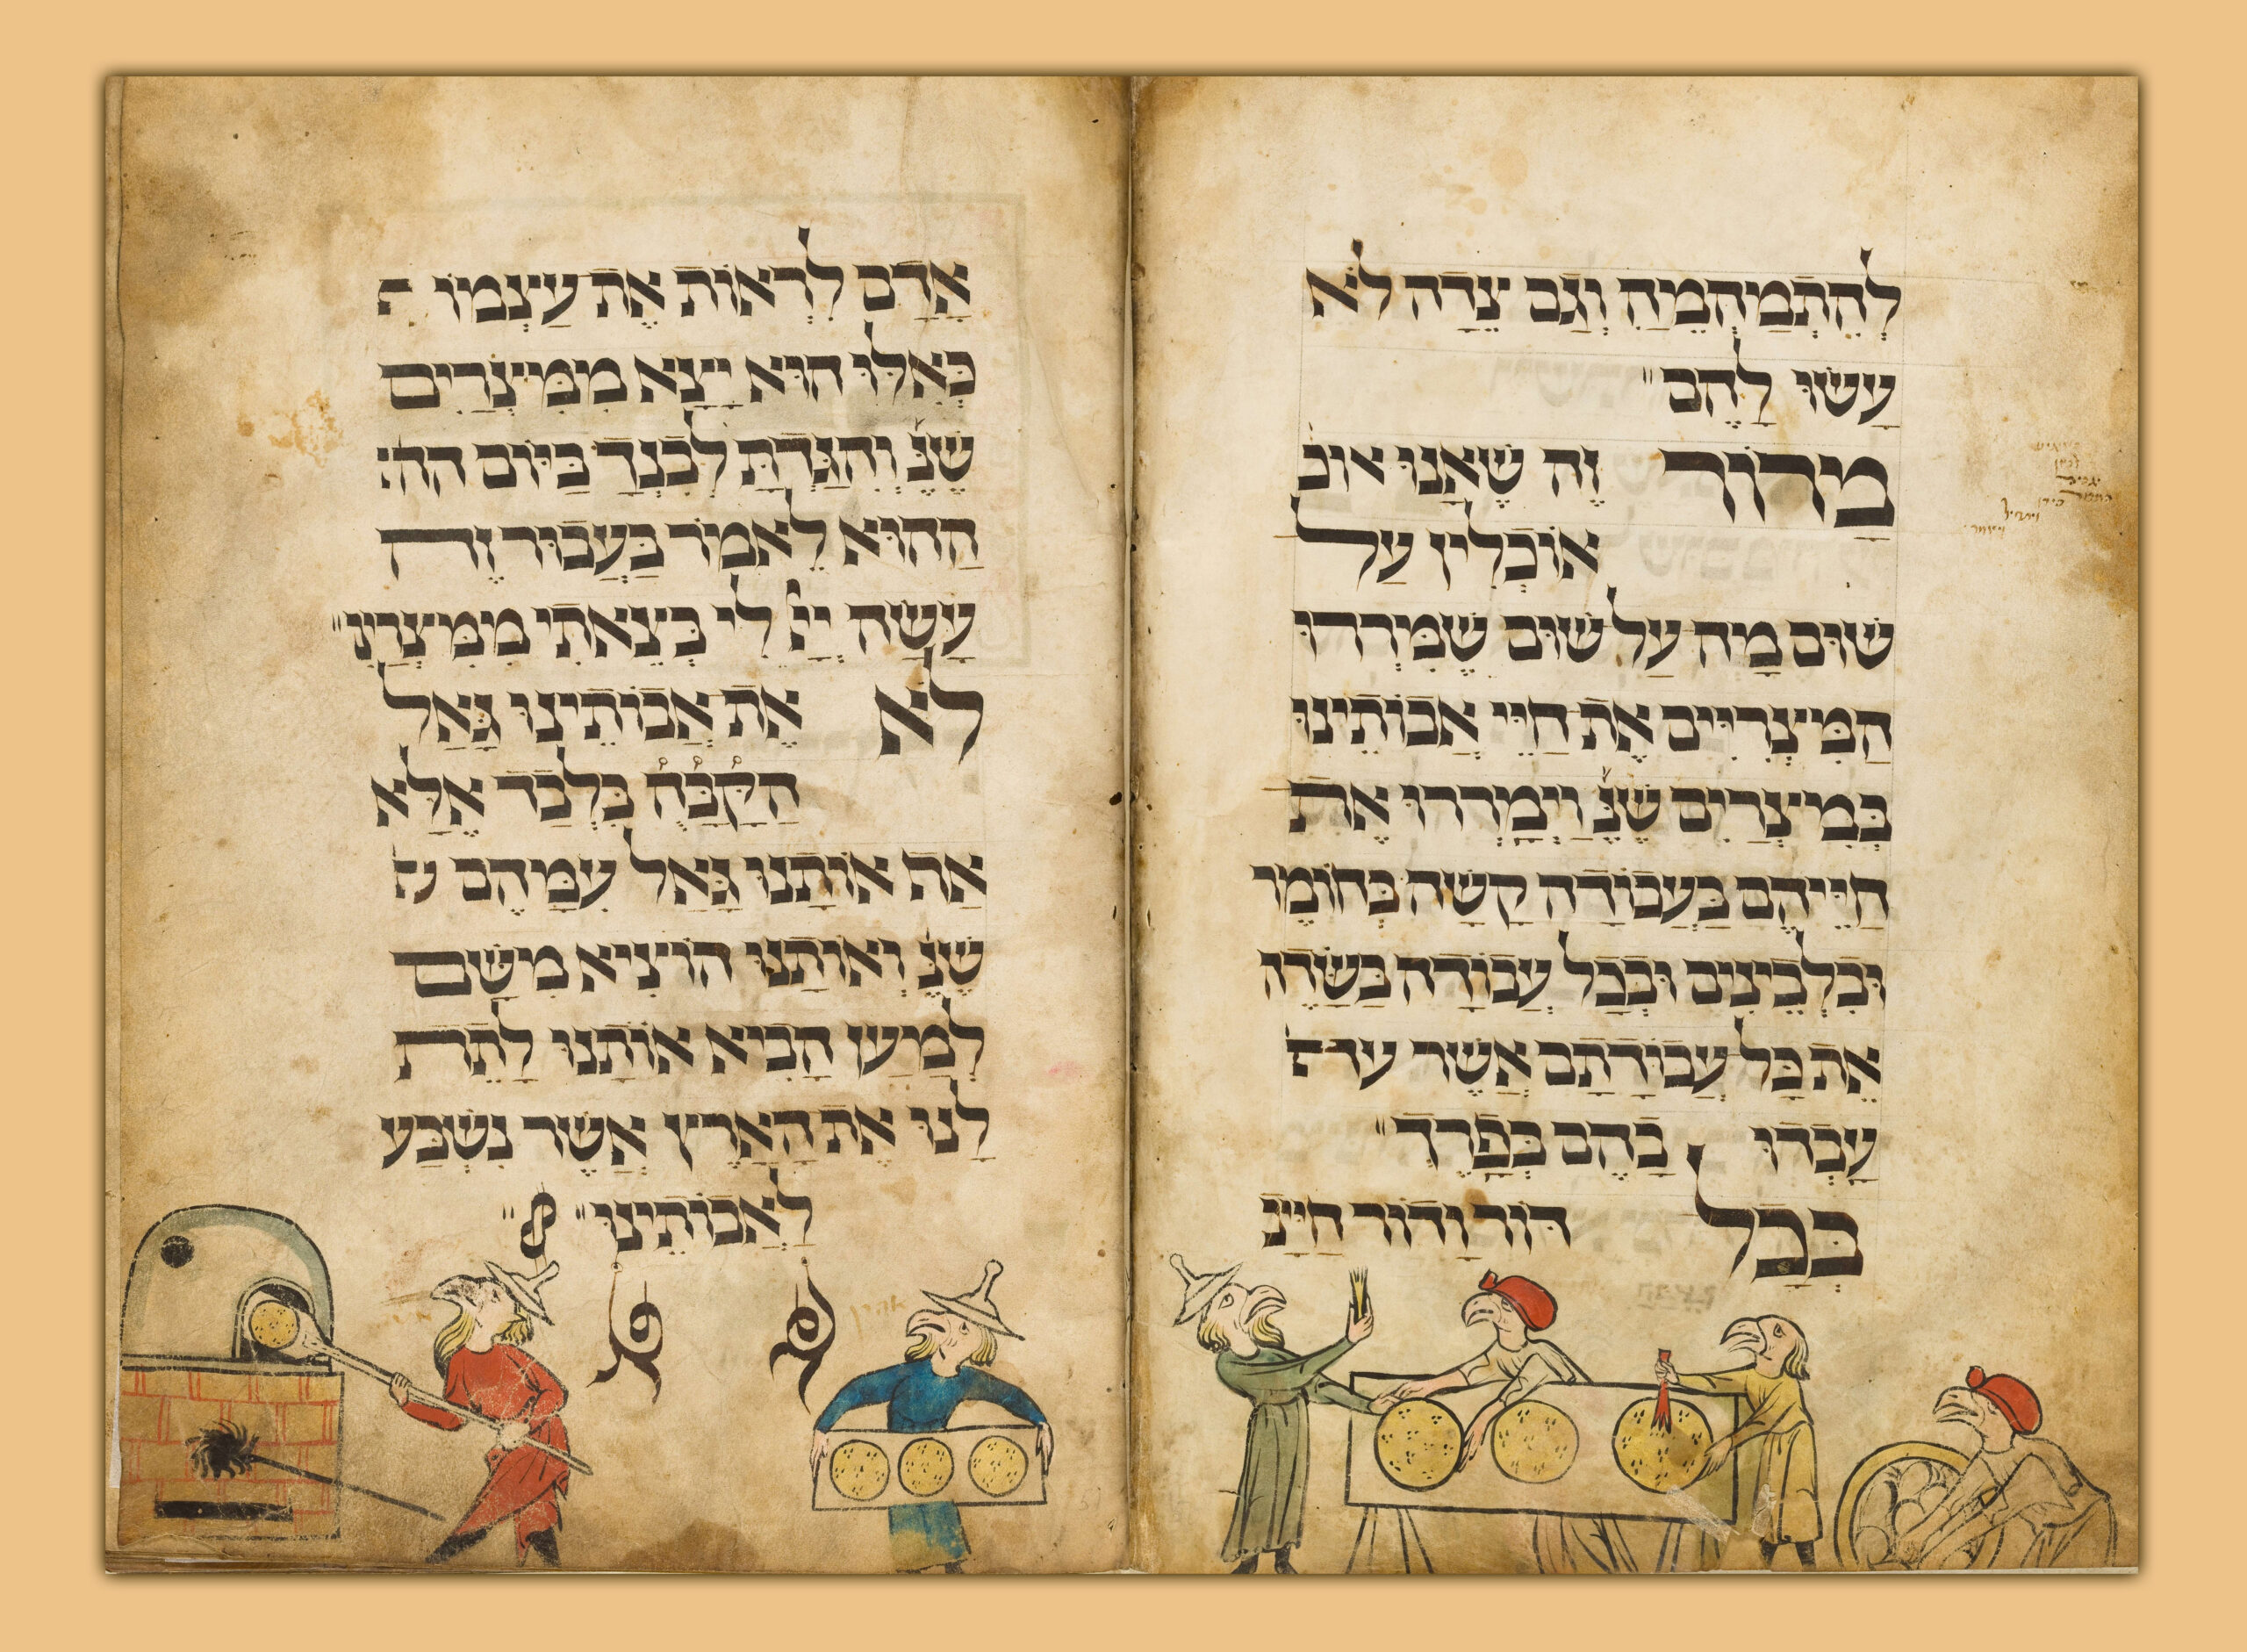 לְהִתְמַהְמֵהַ וְגַם צֵדָה לֹא
עָשׂוּ לָהֶם״
מָרוֹר זֶה שֶׁאָנוּ אוכ
אוֹכְלִין עַל
שׁוּם מָה עַל שׁוּם שֶׁמֵּרְרוּ
הַמִּצְרִיִּים אֶת חַיֵּי אֲבוֹתֵינוּ
בְּמִצְרַיִם שֶׁנֶּ וַיְמָרְרוּ אֶת
חַיֵּיהֶם בַּעֲבוֹדָה קָשָׁה בְּחוֹמֶר
וּבִלְבֵינִים וּבְכָל עֲבוֹדָה בַּשָּׂדֶה
אֵת כָּל עֲבוֹדָתָם אֲשֶׁר
עָבְדוּ בָהֶם בְּפָרֶךְ״
בְּכָל דּוֹר וָדוֹר חַיָּי
אָדָם לִרְאוֹת אֶת עַצְמוֹ
כְּאִלּוּ הוּא יָצָא מִמִּצְרַיִם
שֶׁנֶּ וְהִגַּדְתָּ לְבִנְךָ בַּיּוֹם הה
הַהוּא לֵאמֹר בַּעֲבוּר זֶה
עָשָׂה יְיָ לִי בְּצֵאתִי מִמִּצְרַיִ״
לֹא אֶת אֲבוֹתֵינוּ גָּאַל
הַקָּבָּהֶ בִּלְבַד אֶלָּא
אַף אוֹתָנוּ גָּאַל עִמָּהֶם
שֶׁנֶּ וְאוֹתָנוּ הוֹצִיא מִשָּׁם
לְמַעַן הָבִיא אוֹתָנוּ לָתֶת
לָנוּ אֶת הָאָרֶץ אֲשֶׁר נִשְׁבַּע
לַאֲבוֹתֵינוּ״